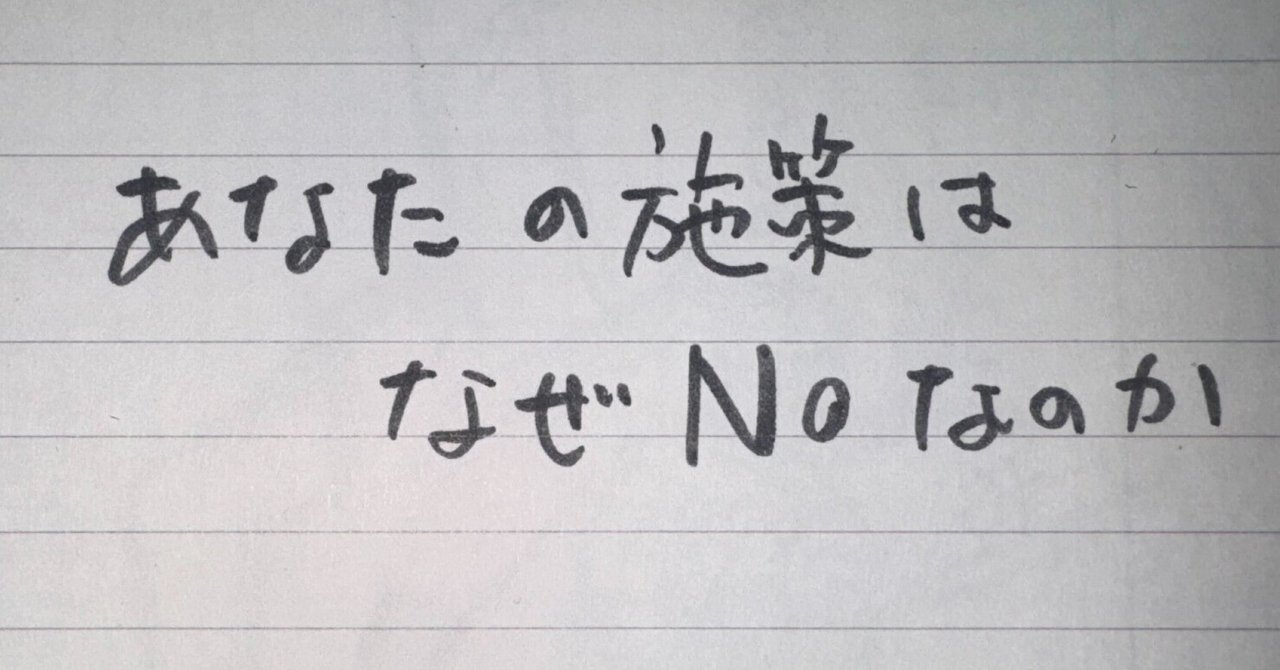 あなたの施策は
なぜNoなのか